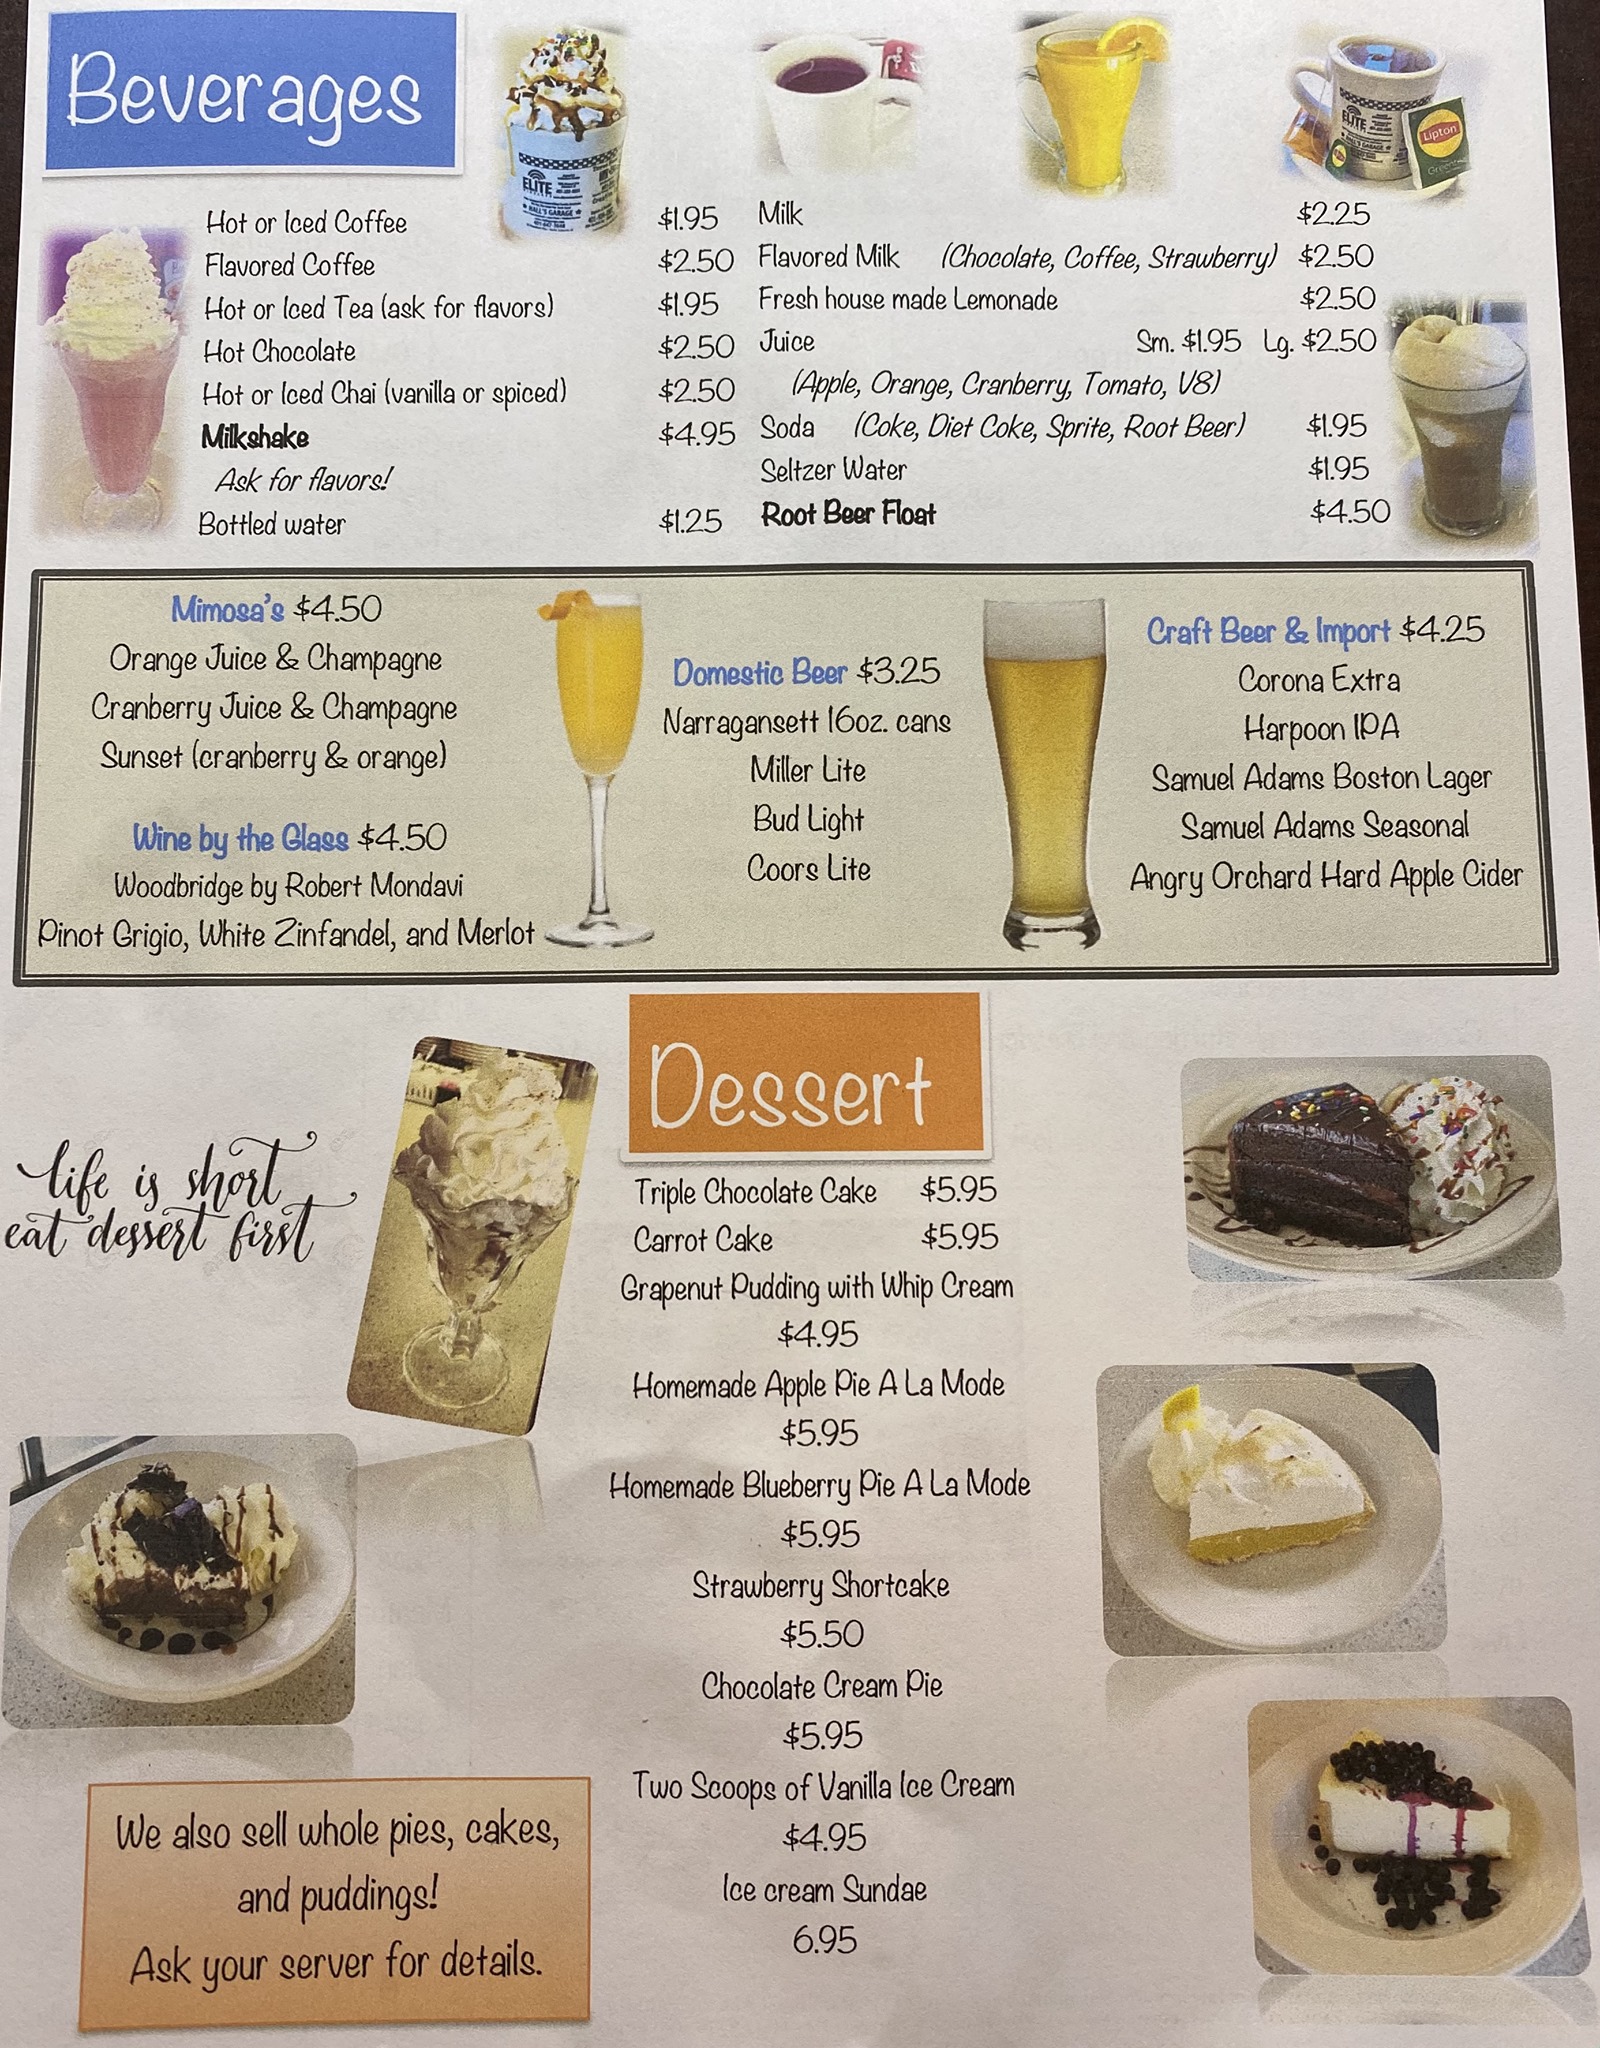 Beverages
ELITE
HALL'S GARAGE
ELITE
HALL'S GARAGE
Lipton
Green Tea
Hot or Iced Coffee $1.95
Flavored Coffee $2.50
Hot or Iced Tea (ask for flavors) $1.95
Hot Chocolate $2.50
Hot or Iced Chai (vanilla or spiced) $2.50
Milkshake $4.95
Ask for flavors!
Bottled water $1.25
Milk $2.25
Flavored Milk (Chocolate, Coffee, Strawberry) $2.50
Fresh house made Lemonade $2.50
Juice Sm. $1.95 Lg. $2.50
(Apple, Orange, Cranberry, Tomato, V8)
Soda (Coke, Diet Coke, Sprite, Root Beer) $1.95
Seltzer Water $1.95
Root Beer Float $4.50
Mimosa's $4.50
Orange Juice & Champagne
Cranberry Juice & Champagne
Sunset (cranberry & orange)
Wine by the Glass $4.50
Woodbridge by Robert Mondavi
Pinot Grigio, White Zinfandel, and Merlot
Domestic Beer $3.25
Narragansett 16oz. cans
Miller Lite
Bud Light
Coors Lite
Craft Beer & Import $4.25
Corona Extra
Harpoon IPA
Samuel Adams Boston Lager
Samuel Adams Seasonal
Angry Orchard Hard Apple Cider
Dessert
life is short
eat dessert first
Triple Chocolate Cake $5.95
Carrot Cake $5.95
Grapenut Pudding with Whip Cream
$4.95
Homemade Apple Pie A La Mode
$5.95
Homemade Blueberry Pie A La Mode
$5.95
Strawberry Shortcake
$5.50
Chocolate Cream Pie
$5.95
Two Scoops of Vanilla Ice Cream
$4.95
Ice cream Sundae
6.95
We also sell whole pies, cakes,
and puddings!
Ask your server for details.